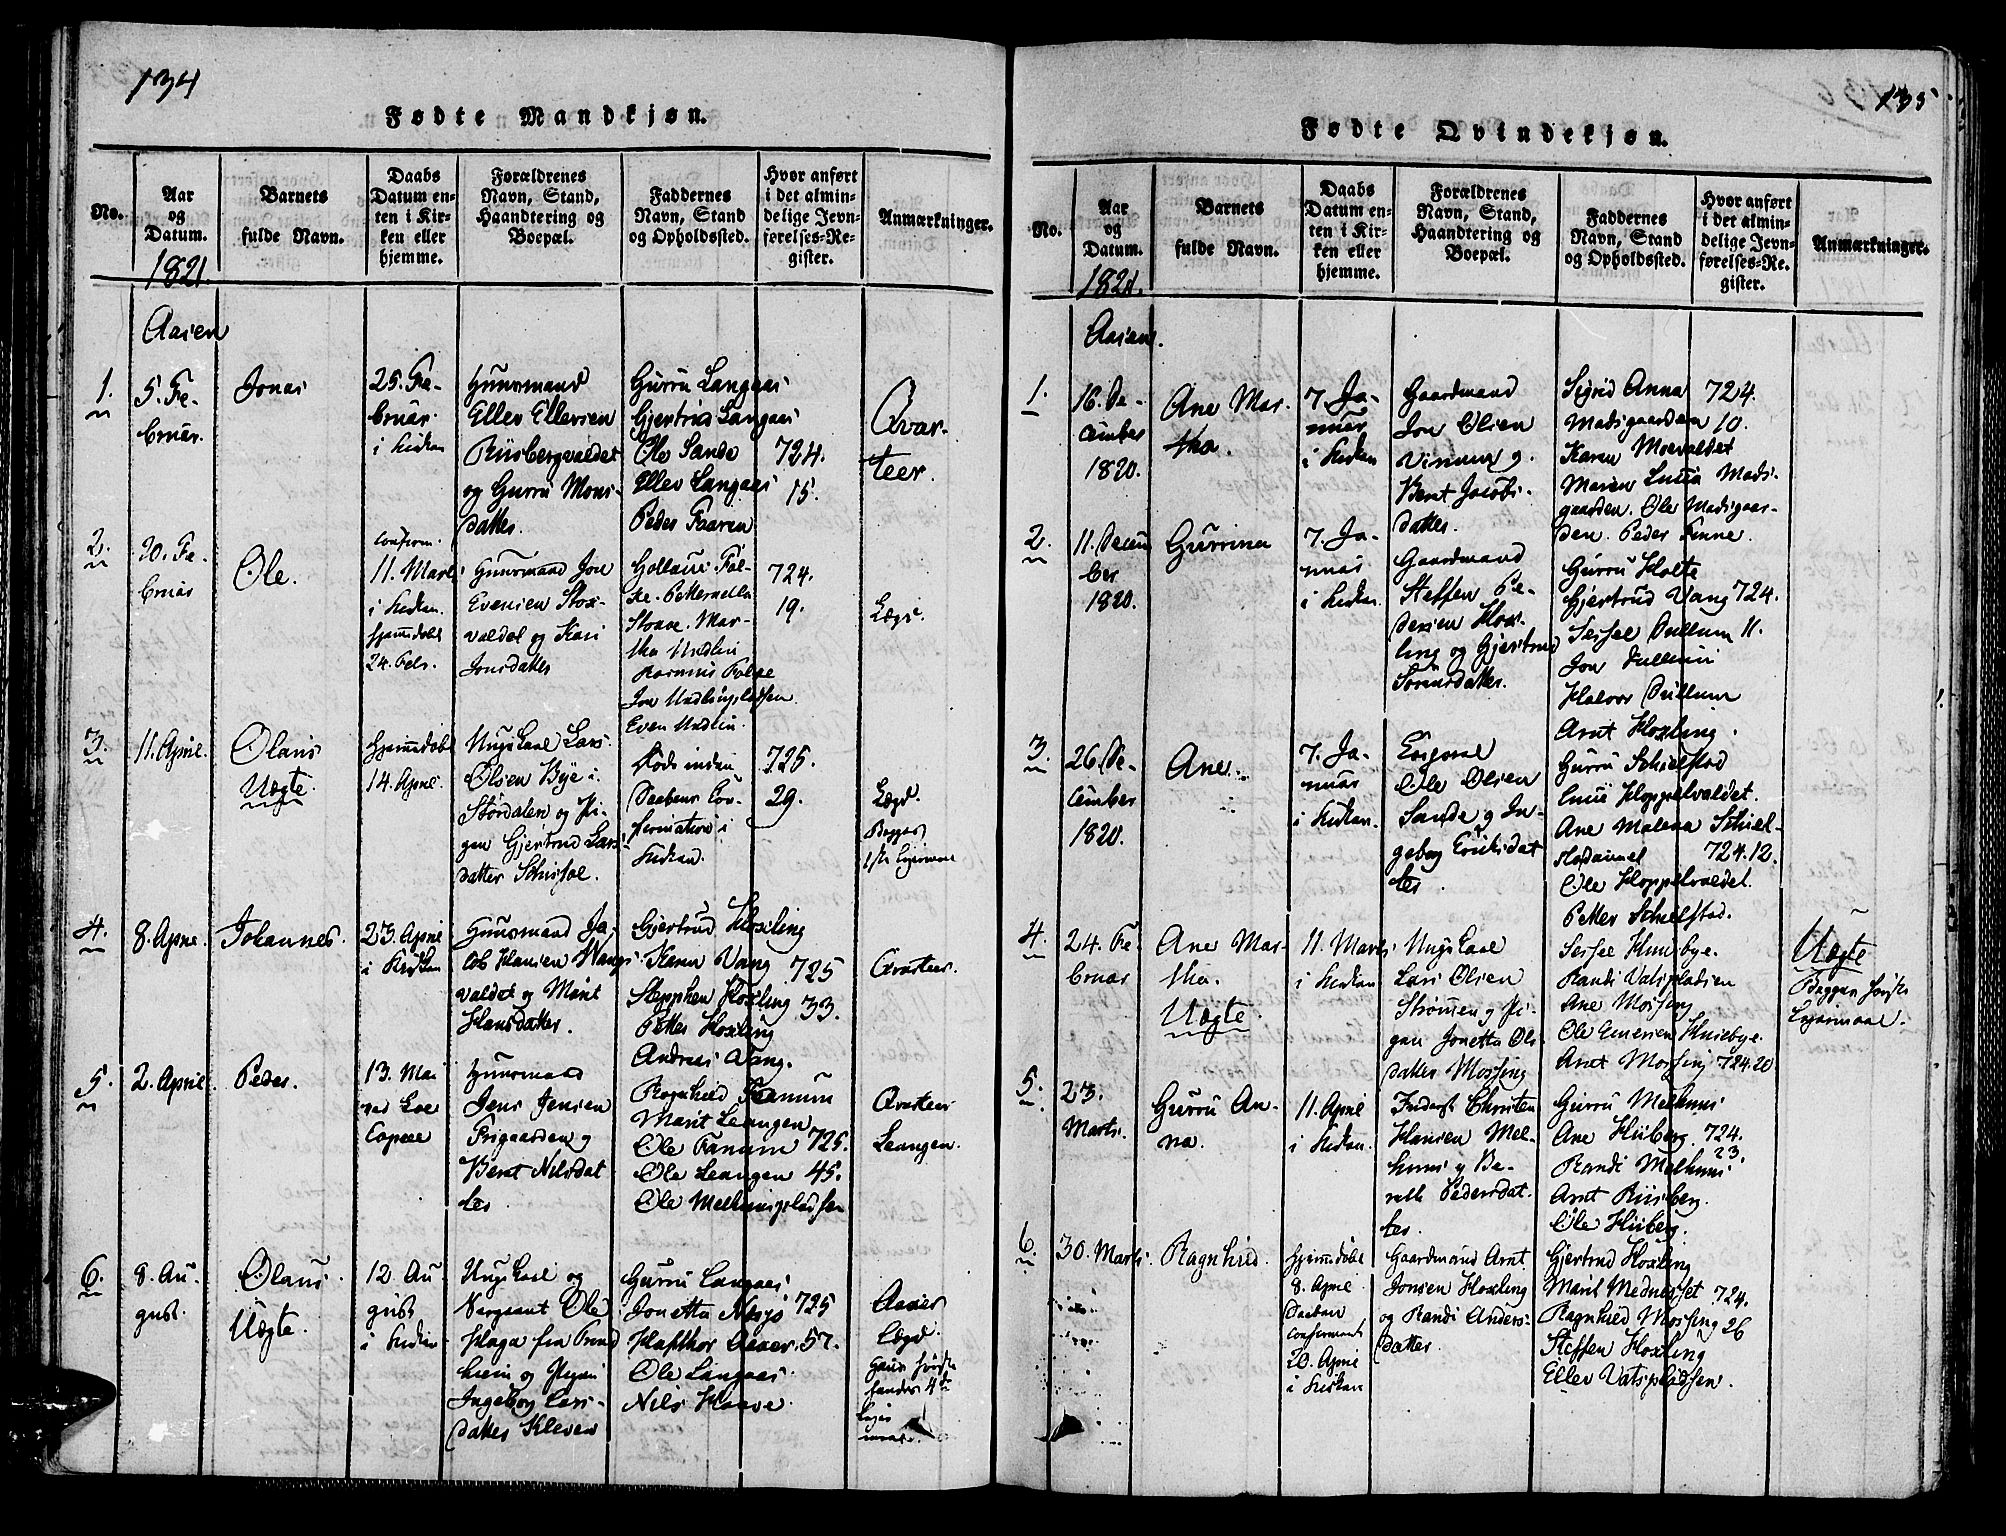 134
Fødte Mandkjøn.
No.
Aar
og
Datum.
1821.
Barnets
fulde Navn.
Daabs
Datum en-
ten i Kir-
ken eller
hjemme.
Forældrenes
Navn, Stand,
Haandtering og
Boepæl.
Faddernes
Navn, Stand
og Opholdssted.
Hvor anført
i det almin-
delige Jevn-
førelses-Re-
gister.
Anmærkninger.
Aasen
1.
5. Fe-
bruar.
Jonas
25. Fe-
bruar.
i Kirken
Huusmand
Ellev Ellevsen
Riisbergvaldet
og Gurru Mons-
datter.
Gurru Langaas
Gjertrud Langaas
Ole Sande
Ellev Langaas
Peder Faaren
724.
15.
Qvar-
teer.
2.
20. Fe-
bruar
Ole.
confirm.
11. Marts
i Kirken.
hjemmedøbt
24. Febr.
Huusmand Jon
Evensen Hox-
valdet og Kari
Jonsdatter
Petternelle
Mar-
tha
Rasmus
Jon
Even
724.
19.
Lægd.
3.
11. April.
Olaus
Uægte.
Hjemmedøbt
14. April.
Ungkarl Lars
Olsen Bye i
Størdalen og Pi-
gen Gjertrud Lars-
datter
Døde inden
Daabens Con-
firmation i
Kirken.
725.
29.
Lægd.
Begges
1ste Leiermaal
4.
8. April.
Johannes.
23. April
i Kirken
Huusmand Ja-
cob Hansen Vangs-
valdet og Marit
Hansdatter.
Gjertrud Hoxling
Karen Vang
Stepphen Hoxling
Petter Hoxling
Andreas Vang.
725
33.
Qvarteer.
5.
2. April.
Peder.
13. Mai
ved Loe
Capell
Huusmand
Jens Jensen
Frigaarden og
Beret Nilsdat
ter
Ragnhild Fanum
Marit Leangen
Ole Fanum
Ole Leangen
Ole Melhuuspladsen
725.
45.
Qvarteer
Leangen.
6.
8. Au-
gust.
Olaus.
Uægte.
12. Au
gust
i Kirken
Ungkarl og
Sergeant Ole
Haga fra Trond
hiem og Pigen
Ingeborg Lars-
datter Kleven
Gurru Langaas
Jonetta Nesgs
Hafthor Aaser.
Ole Langaas.
Nils Haave.
725
57.
Aaser
Lægd.
hans første
hendes 4de
Leier
maal.
135
Fødte Qvindekjøn.
No.
Aar
og
Datum.
1821.
Barnets
fulde Navn.
Daabs
Datum en-
ten i Kir-
ken eller
hjemme.
Forældrenes
Navn, Stand,
Haandtering og
Boepæl.
Faddernes
Navn, Stand
og Opholdssted.
Hvor anført
i det almin-
delige Jevn-
førelses-Re-
gister.
Anmærkninger.
Aasen.
1.
16. De-
cember
1820.
Ane Mar-
tha.
7. Ja-
nuar
i Kirken
Gaardmand
Jon Olsen
Vinnan og
Beret Jacobs-
datter.
Sigrid Anna
Madsgaarden
Karen Moevaldet
Maren Lucia Mads-
gaarden. Ole Madsgaar-
den. Peder Finne.
724.
10.
2.
11. Decem
ber
1820.
Gurrina
7. Ja-
nuar
i Kirken.
Gaardmand
Steffen Pe-
dersen Hox-
ling og Gjertrud
Sørensdatter.
Gurru Holte
Gjertrud Vang
Sessel Dullum
Jon Dullum
Halvor Dullum
Arnt Hoxling.
724.
11.
3.
26. De-
cember
1820.
Ane.
7. Ja-
nuar
i Kirken.
Ole Olsen
Sande og In-
geborg Eriksdat
ter.
Gurru Schielstad
Hoppelvaldet.
Ane Malena Schiel-
Ole Hoppelvaldet.
Petter Schielstad.
724.12.
4.
24. Fe-
bruar
Ane Mar-
tha.
Uægte.
11. Marts
i Kirken
Ungkarl
Lars Olsen
Strømen og Pi-
gen Jonetta Ols
datter Mossing
Sessel Huusbye.
Randi Vatspladsen
Ane Mossing
Ole Huusbye.
Arnt Mossing
724.20
Uægte
Begges første
Leiermaal.
5.
23.
Marts.
Gurru An-
na.
11. April
i Kirken.
Inderst Christen
Hansen Mel-
huus og Be-
reth Pedersdat.
ter.
Gurru Melhuus
Ane Huberg.
Randi Melhuus
Arnt Riisberg.
Ole Huberg.
724.
23.
6.
30. Marts.
Ragnhild.
hjemmedøbt
8. April
Daaben
confirmeret
20. April
i Kirken
Gaardmand Arnt
Jonsen Hoxling
og Randi Anders-
datter.
Gjertrud Hoxling
Marit
Ragnhild Mossing
Steffen Hoxling
Ellev Vatspladsen.
724.
26